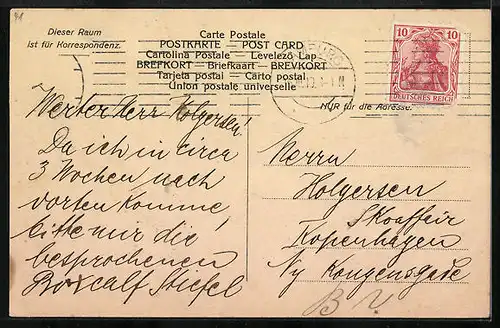 41
Dieser Raum
ist für Korrespondenz.
Carte Postale
POSTKARTE — POST CARD
Cartolina Postale — Levelező Lap
BREFKORT — Briefkaart — BREVKORT
Tarjeta postal — Carto postal
Union postale universelle
NUR für die Adresse.
10 10
DEUTSCHES REICH
Werter Herr Holgersen!
Da ich in circa
3 Wochen nach
dorten komme,
bitte mir die
besprochenen
Boxcalf Stiefel
Herrn
Holgersen
Kopenhagen
Ny Kongensgade